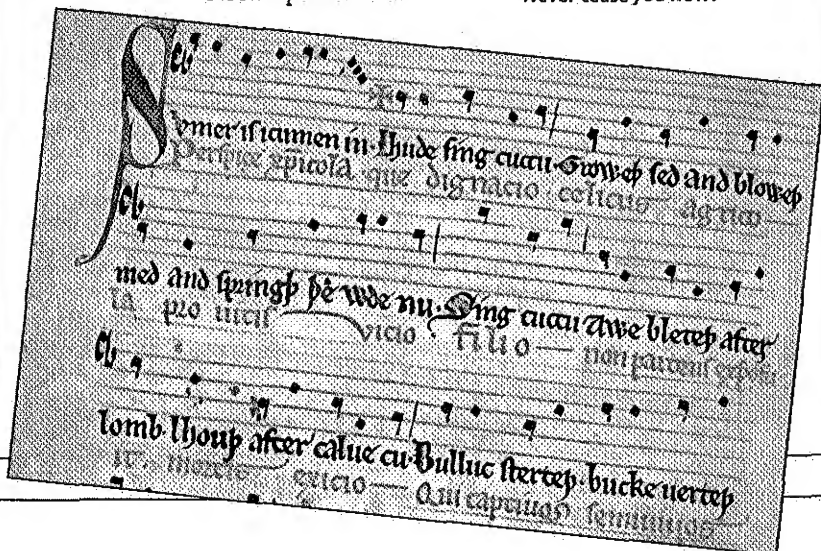 Never cease you now.
Svmer is icumen in. Lhude sing cuccu. Groweþ sed and bloweþ
Perspice xpicola que dignacio. celicus agrico
med and springþ þe wde nu. Sing cuccu Awe bleteþ after
la pro uitis vicio filio non parcens exposu
lomb. lhouþ after calue cu. Bulluc sterteþ. bucke uerteþ
it. mortis exicio Qui captiuos semiuiuos